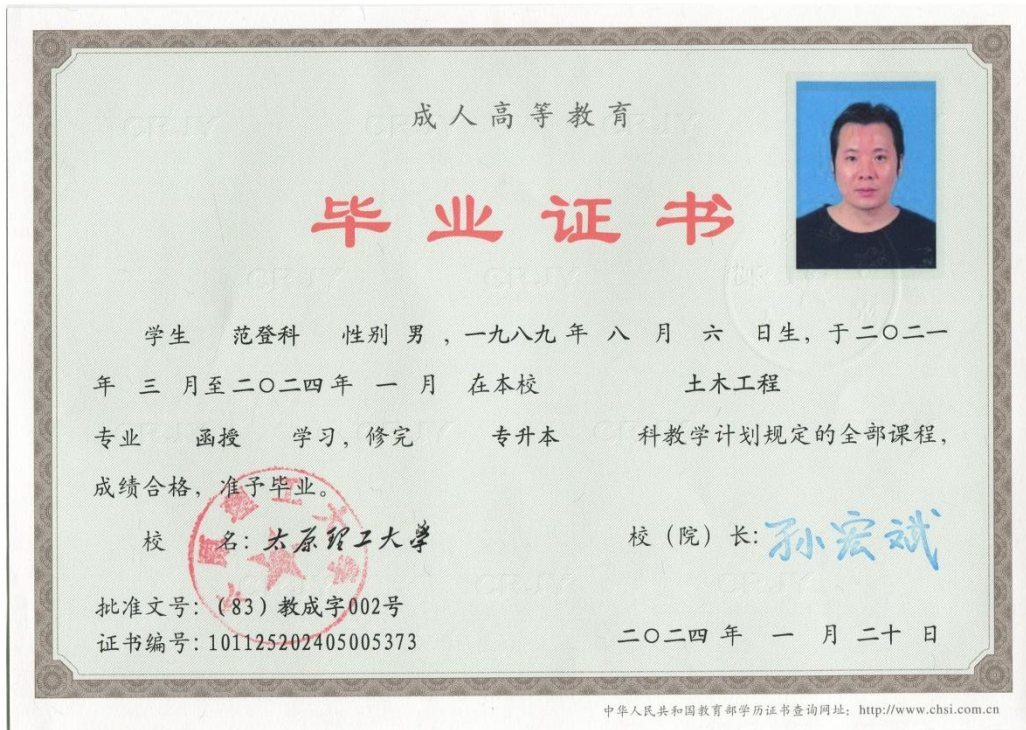 成人高等教育
毕业证书
学生 范登科 性别 男 ,一九八九 年 八 月 六 日生，于二〇二一
年 三 月至二〇二四年 一 月 在本校 土木工程
专业 函授 学习，修完 专升本 科教学计划规定的全部课程，
成绩合格，准予毕业。
校 名：太原理工大学
校（院）长：孙宏斌
太原理工大学
批准文号：（83）教成字002号
证书编号：101125202405005373
二〇二四 年 一 月 二十 日
中华人民共和国教育部学历证书查询网址：http://www.chsi.com.cn
CR-JY